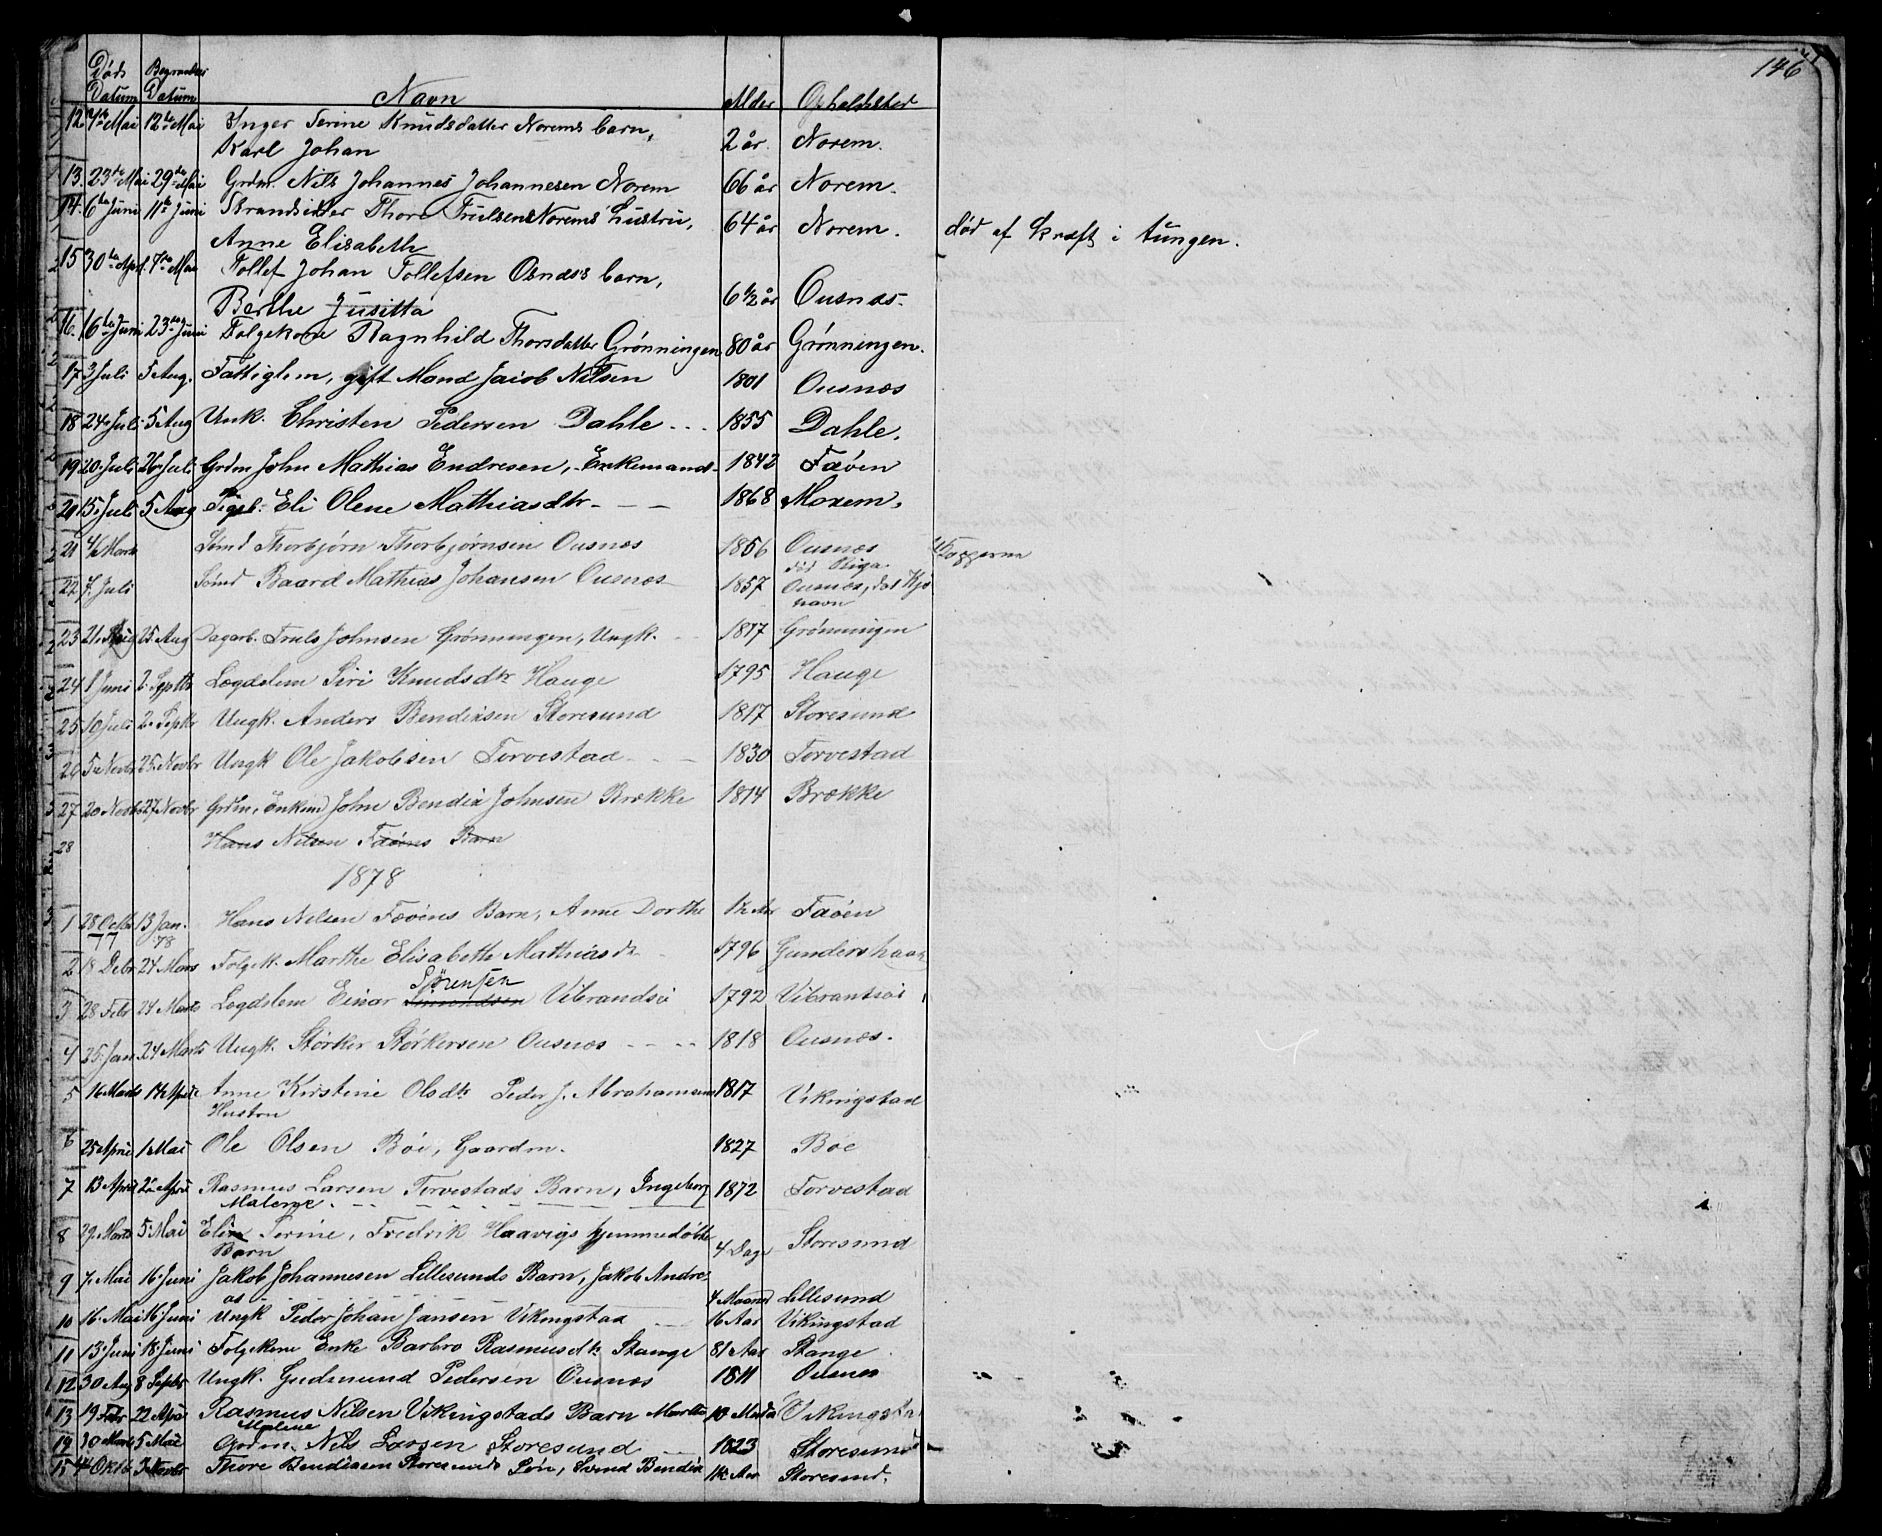 146
Døds Datum Begravelses Datum Navn Alder Opholdssted
12 7de Mai 12te Mai Inger Serine Knudsdatter Norems barn,
Karl Johan 2 år. Norem.
13. 23de Mai 29de Mai Grdm. Nils Johannes Johannesen Norem 66 år Norem.
14. 6te Juni 11te Juni Strandsidder Thore Trulsens Norems hustru,
Anne Elisabeth 64 år Norem. død af kræft i tungen.
15 30te April. 7de Mai Tollef Johan Tollefsen Osnæs barn,
Berthe Jusitta 6 1/2 år Ousnæs.
16. 16te Juni 23de Juni Folgekone Ragnhild Thorsdatter Grønningen 80 år Grønningen.
17 3 Juli 5 Aug. Fattiglem, gift Mand Jacob Nilsen 1801 Ousnæs
18 24. Juli 5 Aug Unk. Christen Pedersen Dahle 1855 Dahle.
19 20. Juli 26. Juli Grdm John Mathias Endresen, Enkemand 1842 Fæøen
20 15. Juli 5 Aug Pigeb. Eli Olene Mathiasdtr 1868 Norem.
21 4 Marts Sømd Thorbjørn Thorbjørnsen Ousnæs 1856 Ousnæs
død Riga.
22 7. Juli Sømd Baard Mathias Johansen Ousnæs 1857 Ousnæs, død Kjø
havn
23 21. Aug 25 Aug Dagarb. Truls Johnsen Grønningen, Ungk. 1817 Grønningen
24 1 Juni 2. Septbr Lægdslem Siri Knudsdtr Hauge 1795 Hauge
25 10 Juli 2. Septbr Ungk. Anders Bendixsen Storesund 1817 Storesund
26 5. Novbr 25. Novbr Ungk Ole Jakobsen Torvestad 1830 Torvestad
27 20 Novbr 27 Novbr Grdm, Enkem John Bendix Johnsen Brække 1814 Brække
28 Hans Nilsen Fæøens Barn
1878
1 28 Octbr 77 13 Jan. 78 Hans Nilsen Fæøens Barn, Anne Dorthe 1 1/2 Aar Fæøen
2 18 Debr 24 Mars Folgek. Marthe Elisabethe Mathiasdtr 1796 Gundershaug
Sørensen
3 28 Febr 24 Marts Lægdslem Einar Vibrandsø 1792 Vibrantsøi
4 25. Jan. 24 Marts Ungk. Størker Størkersen Ousnæs 1818 Ousnæs.
5 16 Marts 14 Aprile Anne Kirstine Olsdtr Peder J. Abrahamsens 1817 Vikingstad
Hustru
6 25 April 1 Mai Ole Olsen Bøe, Gaardm. 1827 Bøe
7 13 April 22 April Rasmus Larsen Torvestads Barn, Ingeborg 1872 Torvestad
Malene
8 29. Marts 5. Mai Elin Serine, Fredrik Haavigs hjemmedøbte
Barn 4 Dage Storesund
9 7. Mai 16. Juni Jakob Johannesen Lillesunds Barn, Jakob Andre
as 4 Maaned Lillesund
10 16. Mai 16 Juni Ungk Peder Johan Jansen Vikingstad 16 Aar Vikingstad
11 13. Juni 18. Juni Folgekone Enke Barbro Rasmusdtr Stange 81 Aar Stange
12 30 Aug 8 Septbr Ungk. Gudmund Pedersen Ousnæs 1811 Ousnæs
13 19 Febr 22 April Rasmus Nilsen Vikingstads Barn Marthe 10 Mdr Vikingsta
Malene
14 30 Marts 5 Mai Grdm. Nils Larsen Storesund 1823 Storesund
15 4 Oktb 3 Novbr Thore Bendixsen Storesunds Søn, Svend Bendix 1 1/2 Aar Storesund.